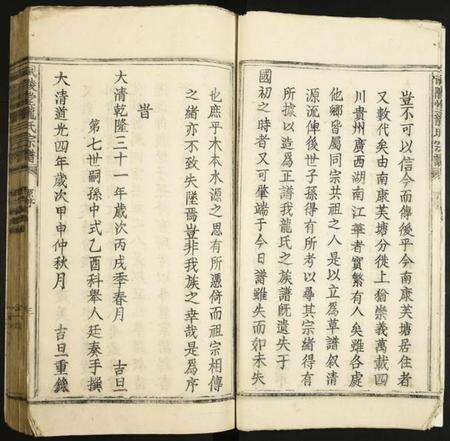 豈不可以信今而傳後乎今南康芙塘居住者
又數代矣由南康芙塘分徙上猶崇義萬載四
川貴州廣西湖南江華者實繁有人矣雖各處
他鄉皆屬同宗共祖之人是以立為草譜叙清
源流俾後世子孫得有所考以尋其宗緒得有
所據以造為正譜我龍氏之族譜既遺失于
國初之時者又可肇端于今日譜雖失而卯未失
也庶乎木本水源之思有所憑倚而祖宗相傳
之緒亦不致失墜焉豈非我族之幸哉是為序
旹
大清乾隆三十一年歲次丙戌季春月 吉旦
第七世嗣孫中式乙酉科舉人廷奏手撰
大清道光四年歲次甲申仲秋月 吉旦重鐫
龍氏宗譜